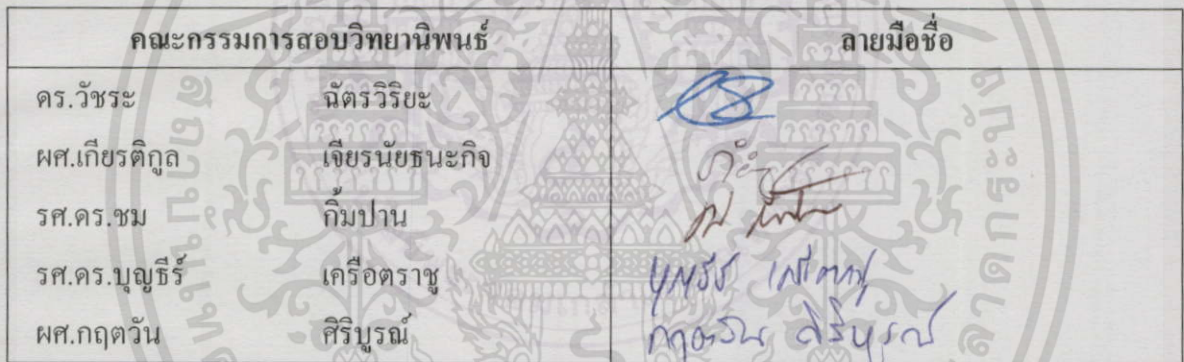 คณะกรรมการสอบวิทยานิพนธ์ ลายมือชื่อ
ดร.วัชระ ฉัตรวิริยะ
ผศ.เกียรติกูล เจียรนัยธนะกิจ
รศ.ดร.ชม กิ้มปาน
รศ.ดร.บุญธีร์ เครือตราชู บุญธีร์ เครือตราชู
ผศ.กฤตวัน ศิริบูรณ์ กฤตวัน ศิริบูรณ์